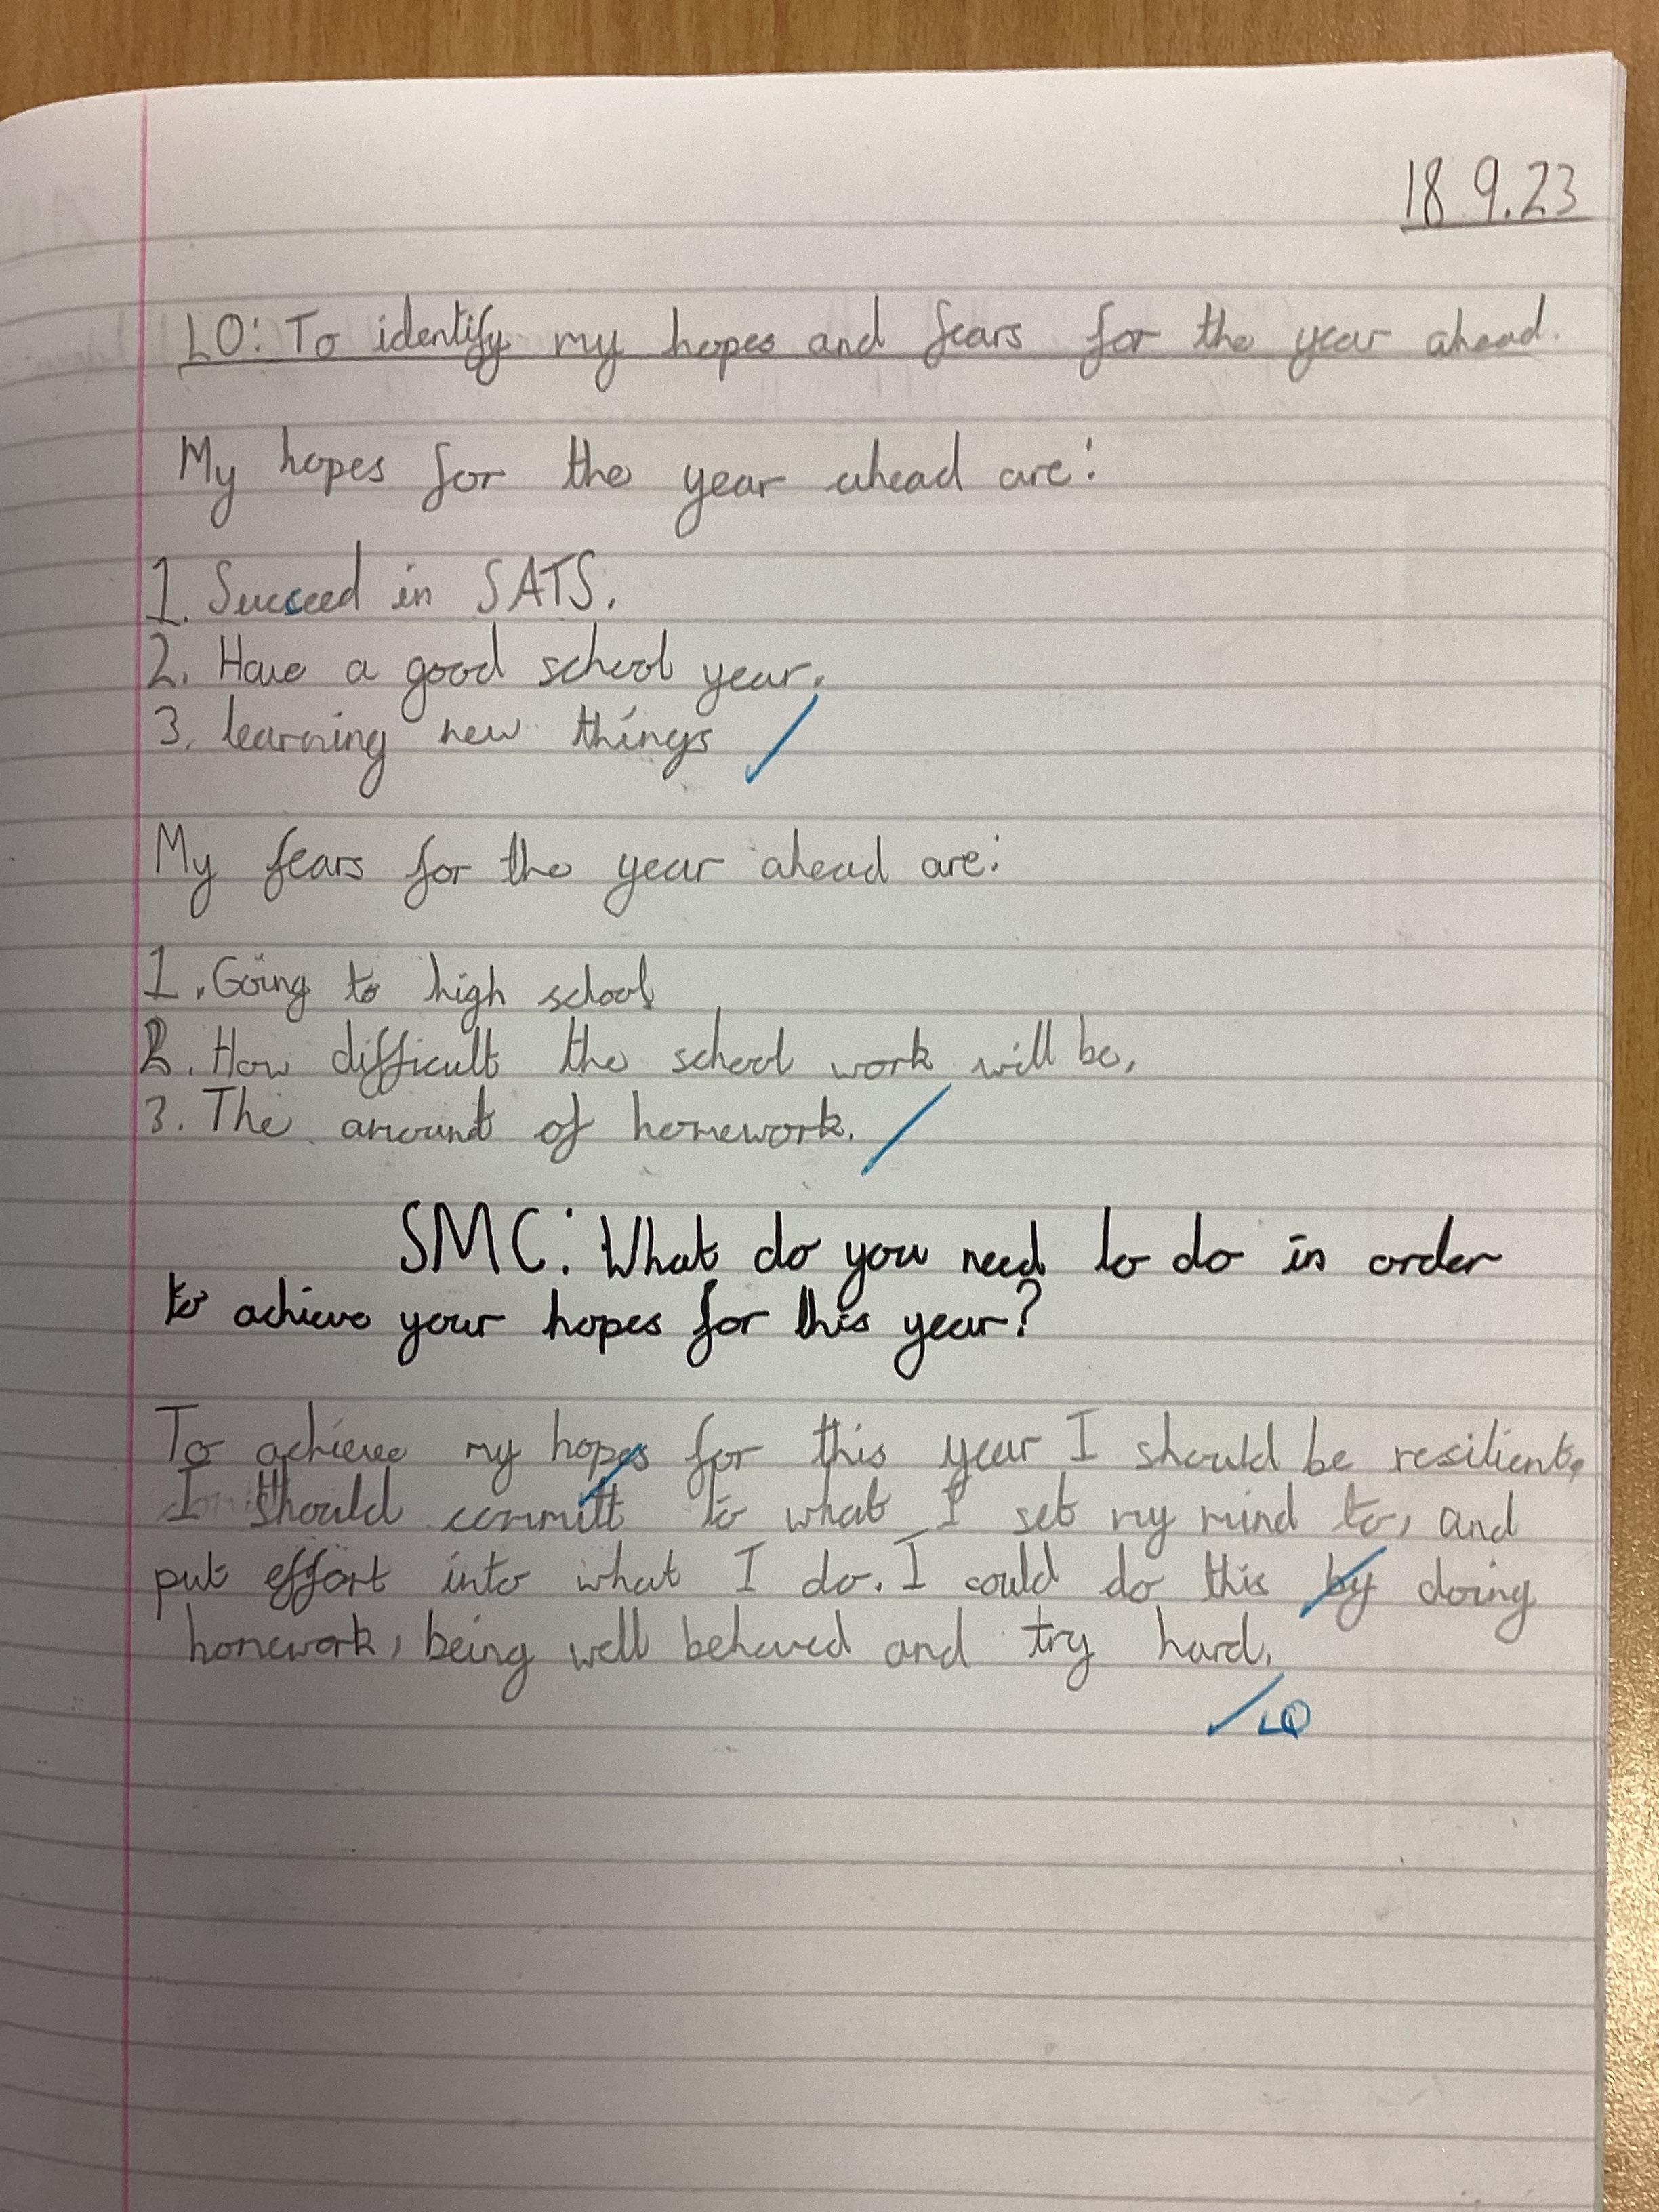 18.9.23
LO: To identify my hopes and fears for the year ahead.
My hopes for the year ahead are:
1. Succeed in SATS.
2. Have a good school year.
3. learning new things
My fears for the year ahead are:
1. Going to high school
2. How difficult the school work will be.
3. The amount of homework.
SMC: What do you need to do in order
to achieve your hopes for this year?
To achieve my hopes for this year I should be resilient.
I should committ to what I set my mind to, and
put effort into what I do. I could do this by doing
homework, being well behaved and try hard.
LQ